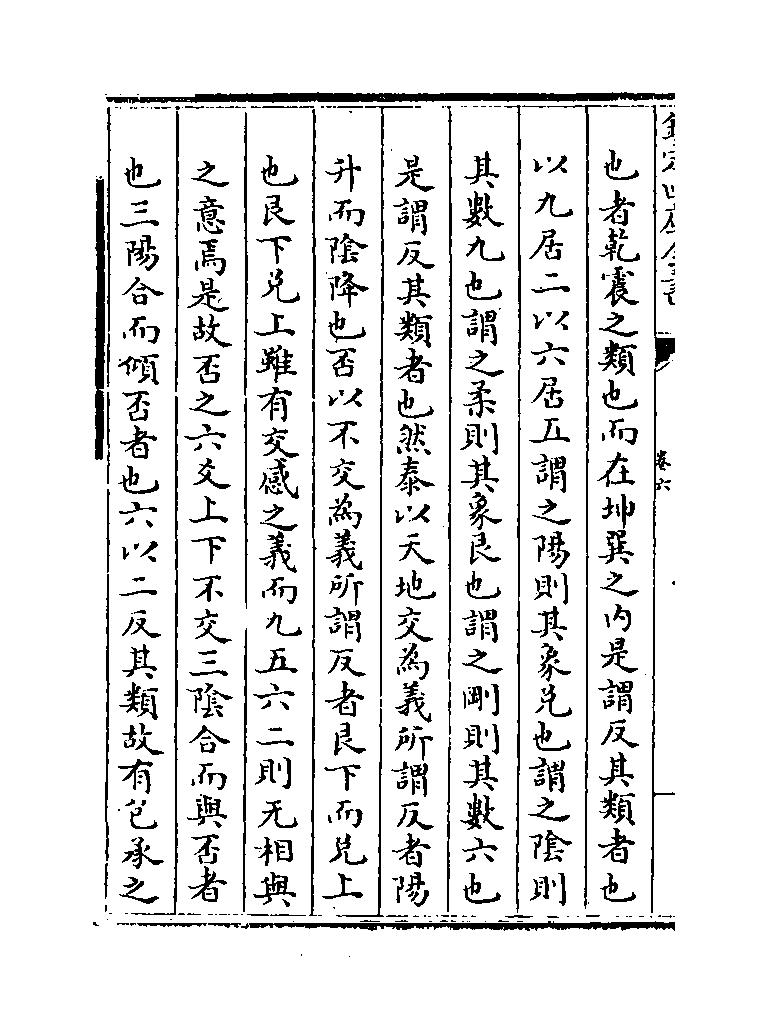 欽定四庫全書
卷六
也者乾震之類也而在坤巽之内是謂反其類者也
以九居二以六居五謂之陽則其象兌也謂之陰則
其數九也謂之柔則其象艮也謂之剛則其數六也
是謂反其類者也然泰以天地交為義所謂反者陽
升而陰降也否以不交為義所謂反者艮下而兌上
也艮下兌上雖有交感之義而九五六二則无相與
之意焉是故否之六爻上下不交三陰合而與否者
也三陽合而傾否者也六以二反其類故有包承之